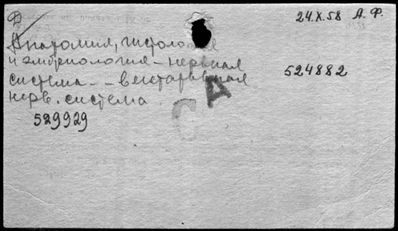 Ф 24.X.58 А.Ф.
Анатомия, гистология
и эмбриология – нервная
система – вегетативная 524882
нерв. система
СА
529929